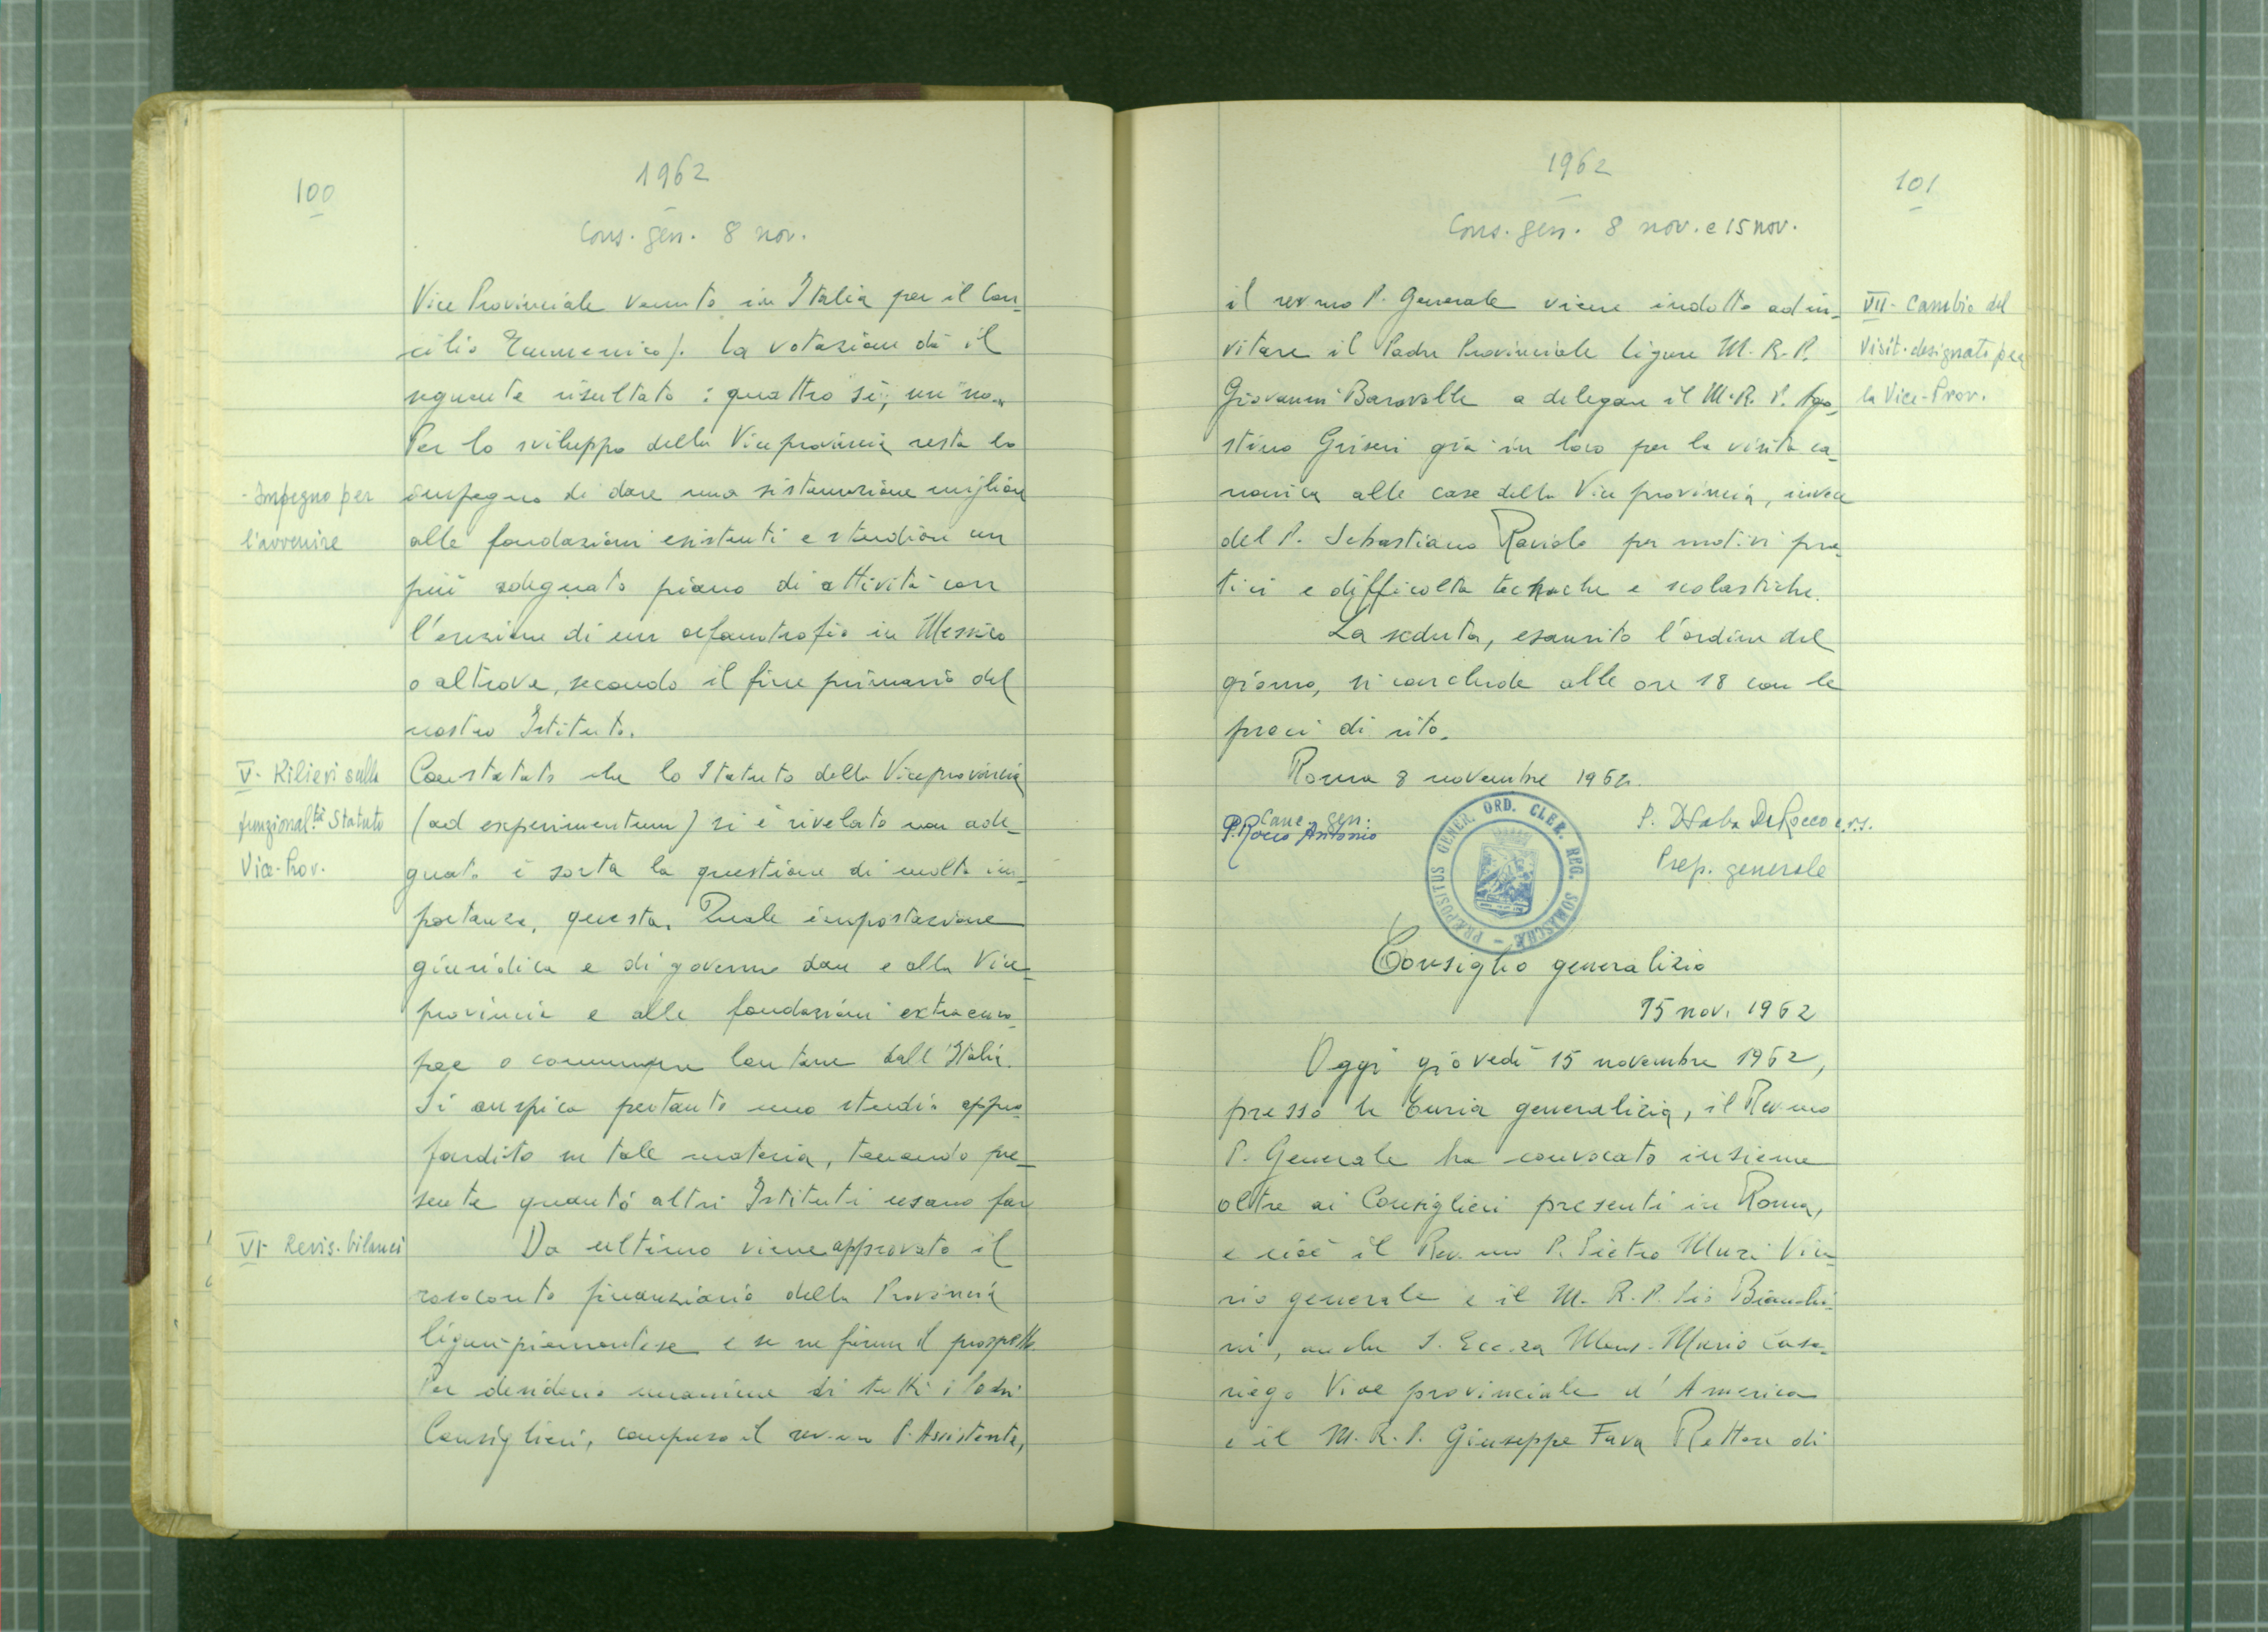 100
1962
Cons. gen. 8 nov.
Vice Provinciale venuto in Italia per il Con-
cilio Ecumenico). La votazione dà il
seguente risultato: quattro "sì", un "no".
Per lo sviluppo della Viceprovincia resta lo
- Impegno per
impegno di dare una sistemazione migliore
l'avvenire
alle fondazioni esistenti e studiare un
più adeguato piano di attività con
l'erezione di un orfanotrofio in Messico
o altrove, secondo il fine primario del
nostro Istituto.
V- Rilievi sulla
Constatato che lo Statuto della Viceprovincia
funzional.tà Statuto
(ad experimentum) si è rivelato non ade-
Vice-Prov.
guato è sorta la questione di molta im-
portanza, questa. Quale impostazione
giuridica e di governo dare e alla Vice-
provincia e alle fondazioni extraeuro-
pee o comunque lontane dall'Italia.
Si auspica pertanto uno studio appro-
fondito in tale materia, tenendo pre-
sente quanto altri Istituti usano fare
VI- Revis. bilanci
Da ultimo viene approvato il
resoconto finanziario della Provincia
ligure-piemontese e se ne firma il prospetto.
Per desiderio unanime di tutti i Padri
Consiglieri, compreso il rev.mo P. Assistente,
101
1962
Cons. gen. 8 nov. e 15 nov.
il rev.mo P. Generale viene indotto ad in-
VII- Cambio del
vitare il Padre Provinciale ligure M. R. P.
Visit. designato per
Giovanni Baravalle a delegare il M. R. P. Ago-
la Vice-Prov.
stino Griseri già in loco per la visita ca-
nonica alle case della Vice provincia, invece
del P. Sebastiano Raviolo per motivi pra-
tici e difficoltà tecniche e scolastiche.
La seduta, esaurito l'ordine del
giorno, si conclude alle ore 18 con le
preci di rito.
Roma 8 novembre 1962.
Canc. gen.
P. Rocco Antonio
P. D. Saba De Rocco c.r.s.
Prep. generale
PRÆPOSITUS GENER. ORD. CLER. REG. SOMASCHÆ
Consiglio generalizio
15 nov. 1962
Oggi giovedì 15 novembre 1962,
presso la Curia generalizia, il Rev.mo
P. Generale ha convocato insieme
oltre ai Consiglieri presenti in Roma,
e cioè il Rev.mo P. Pietro Muzi Vica-
rio generale e il M. R. P. Pio Bianchi-
ni, anche S. Ecc.za Mons. Mario Casa-
riego Vice provinciale d'America
e il M. R. P. Giuseppe Fava Rettore di